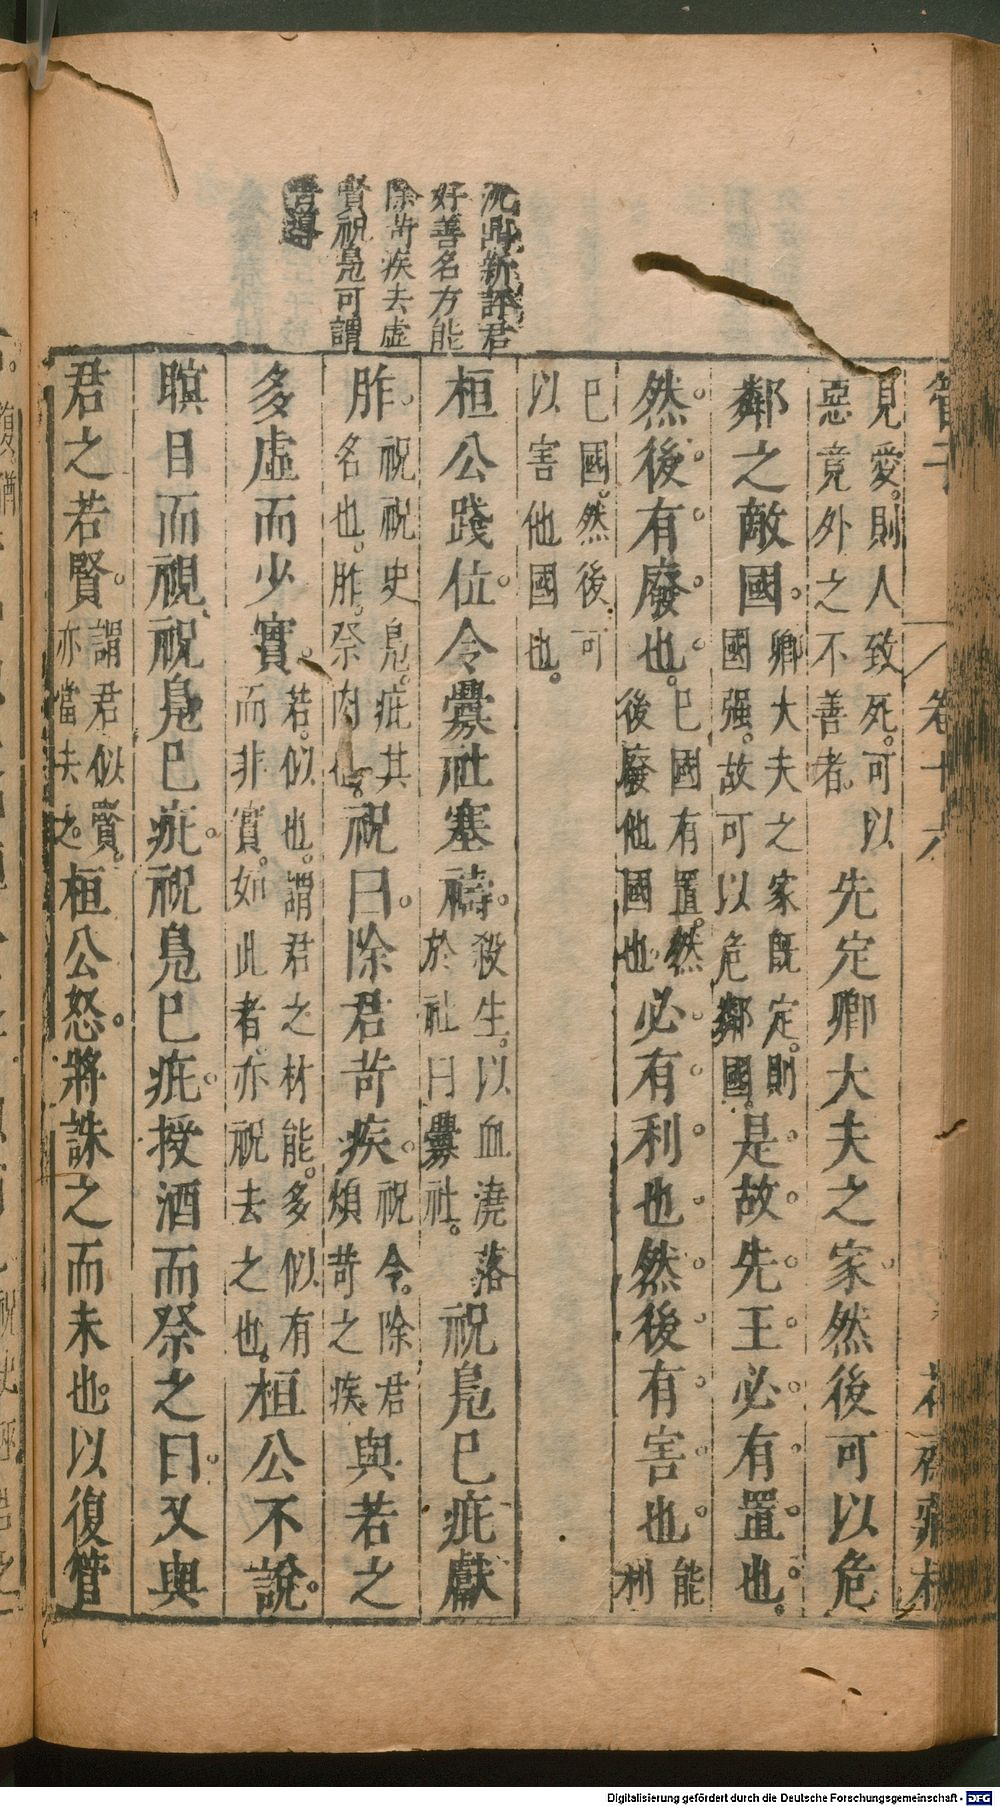 管子
卷十六
花齋藏板
沈鼎新評君
好善名方能
除苛疾去虛
賢祝鳧可謂
見愛。則人致死。可以
惡竟外之不善者。
先定卿大夫之家。然後可以危
鄰之敵國。
卿大夫之家既定。則
國强。故可以危鄰國。
是故先王必有置也。
然後有廢也。
巳國有置。然
後廢他國也
必有利也然後有害也
能利
巳國。然後可
以害他國也。
桓公踐位。令釁社塞禱。
殺生。以血澆落
於社曰釁社。
祝鳧巳疵獻
胙。
祝祝史鳧。疵其
名也。胙。祭肉也
祝曰。除君苛疾。
祝令。除君
煩苛之疾
與若之
多虛而少實。
若。似也。謂君之材能。多似有
而非實。如此者。亦祝去之也。
桓公不說。
瞋目而視祝鳧巳疵。祝鳧巳疵。授酒而祭之曰。又與
君之若賢。
謂君似賢。
亦當去之。
桓公怒。將誅之而未也。以復管
Digitalisierung gefördert durch die Deutsche Forschungsgemeinschaft - DFG